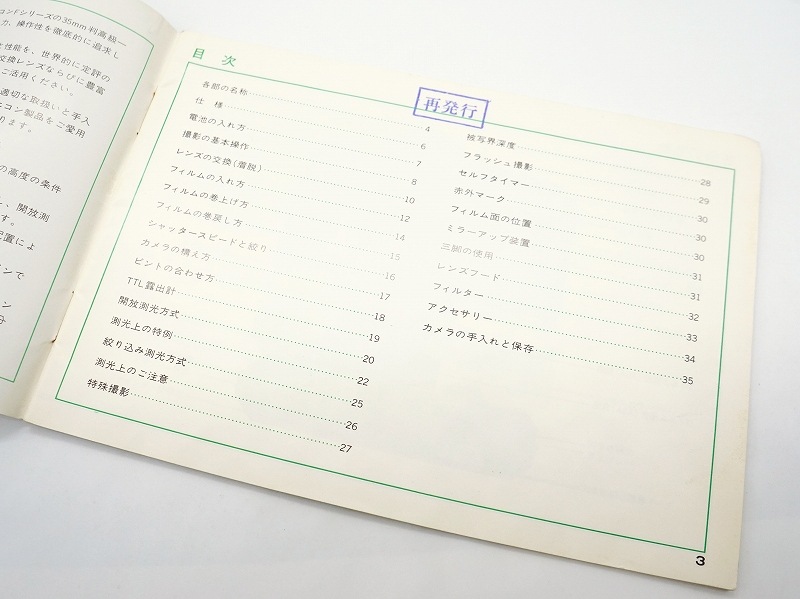 コンFシリーズの35mm判高級一
力、操作性を徹底的に追求し
と性能を、世界的に定評の
交換レンズならびに豊富
ご活用ください。
適切な取扱いと手入
コン製品をご愛用
ります。
の高度の条件
、開放測
す。
配置によ
ンで
ン
分
目 次
再発行
各部の名称 4
仕 様 6
電池の入れ方 7
撮影の基本操作 8
レンズの交換(着脱) 10
フィルムの入れ方 12
フィルムの巻上げ方 14
フィルムの巻戻し方 15
シャッタースピードと絞り 16
カメラの構え方 17
ピントの合わせ方 18
TTL露出計 19
開放測光方式 20
測光上の特例 22
絞り込み測光方式 25
測光上のご注意 26
特殊撮影 27
被写界深度 28
フラッシュ撮影 29
セルフタイマー 30
赤外マーク 30
フィルム面の位置 30
ミラーアップ装置 31
三脚の使用 31
レンズフード 32
フィルター 33
アクセサリー 34
カメラの手入れと保存 35
3